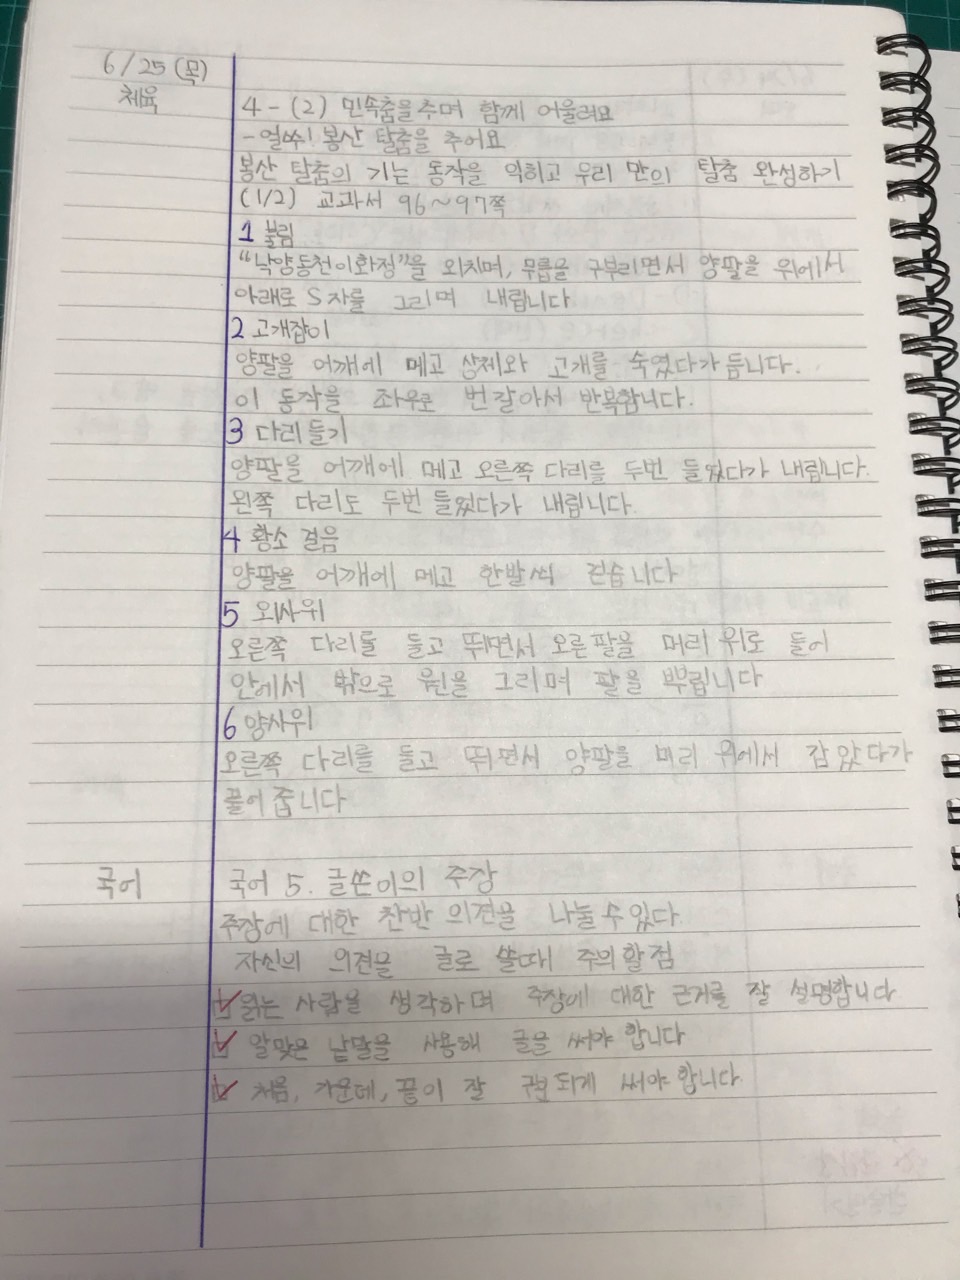 6/25 (목)
체육
4-(2) 민속춤을 추며 함께 어울려요
-얼쑤! 봉산 탈춤을 추어요
봉산 탈춤의 기는 동작을 익히고 우리 만의 탈춤 완성하기
(1/2) 교과서 96~97쪽
1 불림
"낙양동천이화정"을 외치며, 무릅을 구부리면서 양팔을 위에서
아래로 S자를 그리며 내립니다
2 고개잡이
양팔을 어깨에 메고 상체와 고개를 숙였다가 듭니다.
이 동작을 좌우로 번갈아서 반복합니다.
3 다리들기
양팔을 어깨에 메고 오른쪽 다리를 두번 들었다가 내립니다.
왼쪽 다리도 두번 들었다가 내립니다.
4 황소 걸음
양팔을 어깨에 메고 한발씩 걷습니다
5 외사위
오른쪽 다리를 들고 뛰면서 오른팔을 머리 위로 들어
안에서 밖으로 원을 그리며 팔을 뿌립니다
6 양사위
오른쪽 다리를 들고 뛰면서 양팔을 머리 위에서 감았다가
풀어 줍니다
국어
국어 5. 글쓴이의 주장
주장에 대한 찬반 의견을 나눌 수 있다.
자신의 의견을 글로 쓸때 주의할점
읽는 사람을 생각하며 주장에 대한 근거를 잘 설명합니다
알맞은 낱말을 사용해 글을 써야 합니다
처음, 가운데, 끝이 잘 구분되게 써야 합니다.